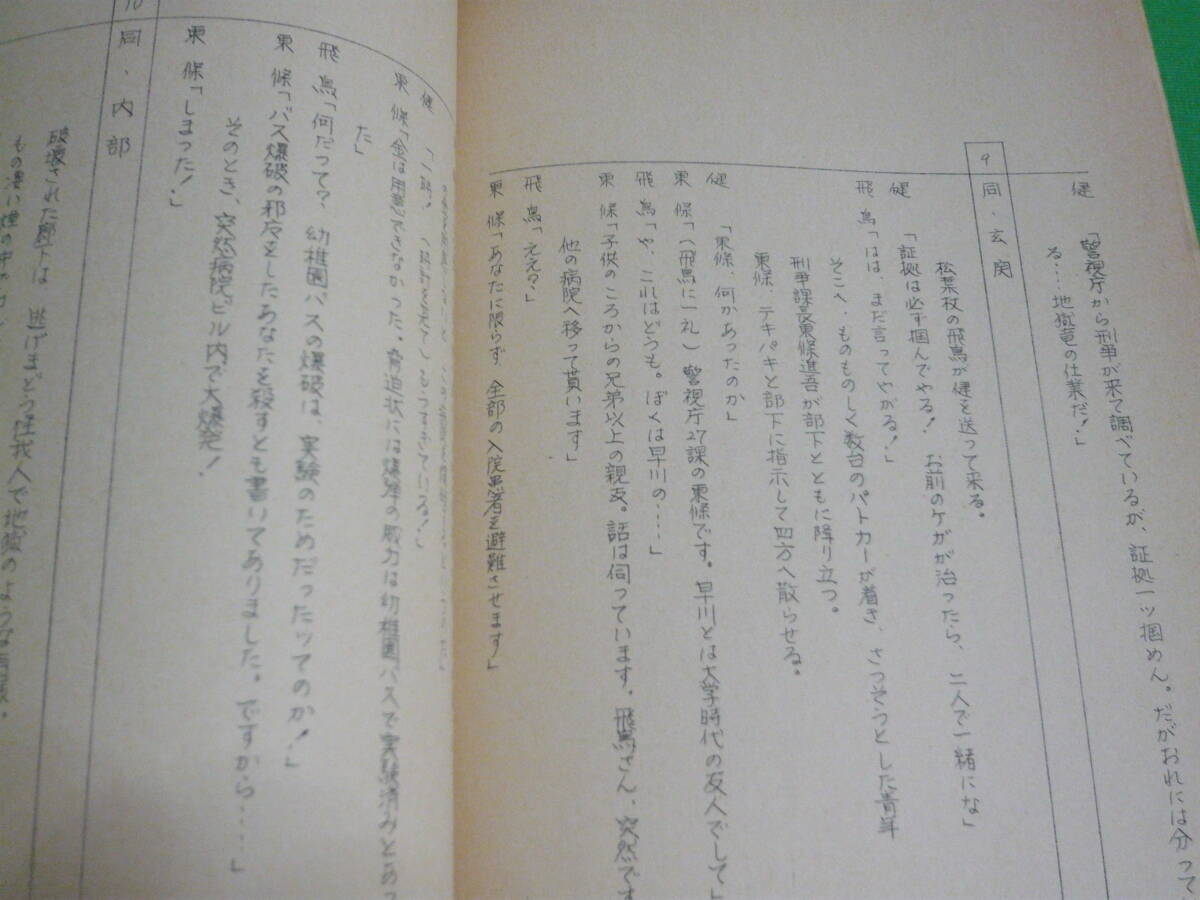 健　「警視庁から刑事が来て調べているが、証拠一ツ掴めん。だがおれには分って
る……地獄竜の仕業だ！」
9 同・玄関
松葉杖の飛鳥が健を送って来る。
健　「証拠は必ず掴んでやる！　お前のケガが治ったら、二人で一緒にな」
飛　鳥「はは、まだ言ってやがる！」
そこへ、ものものしく数台のパトカーが着き、さっそうとした青年
刑事課長東條進吾が部下とともに降り立つ。
東條、テキパキと部下に指示して四方へ散らせる。
健　「東條、何かあったのか」
東　條「（飛鳥に一礼）警視庁27課の東條です。早川とは大学時代の友人でして」
飛　鳥「や、これはどうも。ぼくは早川の……」
東　條「子供のころからの兄弟以上の親友。話は伺っています。飛鳥さん、突然です
他の病院へ移って貰います」
飛　鳥「ええ？」
東　條「あなたに限らず、全部の入院患者を避難させます」
健
東　條「金は用意できなかった。脅迫状には爆弾の威力は幼稚園バスで実験済みとあっ
た」
飛　鳥「何だって？　幼稚園バスの爆破は、実験のためだったッてのか！」
東　條「バス爆破の邪魔をしたあなたを殺すとも書いてありました。ですから……」
そのとき、突然病院ビル内で大爆発！
東　條「しまった！」
10 同・内部
破壊された廊下は、逃げまどう怪我人で地獄のような
もの凄い煙の中